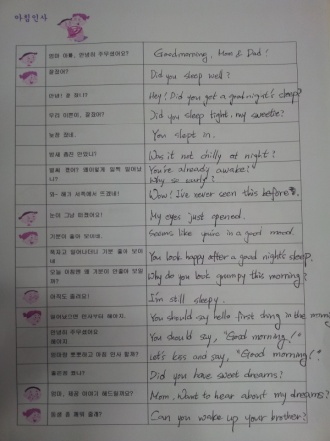 아침인사
엄마 아빠, 안녕히 주무셨어요?
Good morning, Mom & Dad!
잘잤어?
Did you sleep well?
안녕! 잘 잤니?
Hey! Did you get a good night's sleep?
우리 이쁜이, 잘잤어?
Did you sleep tight, my sweetie?
늦잠 잤네.
You slept in.
밤새 춥진 않았니?
Was it not chilly at night?
벌써 깼어? 왜이렇게 일찍 일어났니?
You're already awake?
Why so early?
와- 해가 서쪽에서 뜨겠네!
Wow! I've never seen this before.
눈이 그냥 떠졌어요.
My eyes just opened.
기분이 좋아 보이네.
Seems like you're in a good mood.
푹자고 일어나더니 기분 좋아 보이네
You look happy after a good night's sleep.
오늘 아침엔 왜 기분이 안좋아 보일까?
Why do you look grumpy this morning?
아직도 졸려요!
I'm still sleepy.
일어났으면 인사부터 해야지.
You should say hello first thing in the morning
안녕히 주무셨어요 해야지.
You should say, "Good morning!"
엄마랑 뽀뽀하고 아침 인사 할까?
Let's kiss and say, "Good morning!"
좋은꿈 꿨니?
Did you have sweet dreams?
엄마, 제꿈 이야기 해드릴까요?
Mom, want to hear about my dreams?
동생 좀 깨워 줄래?
Can you wake up your brother?